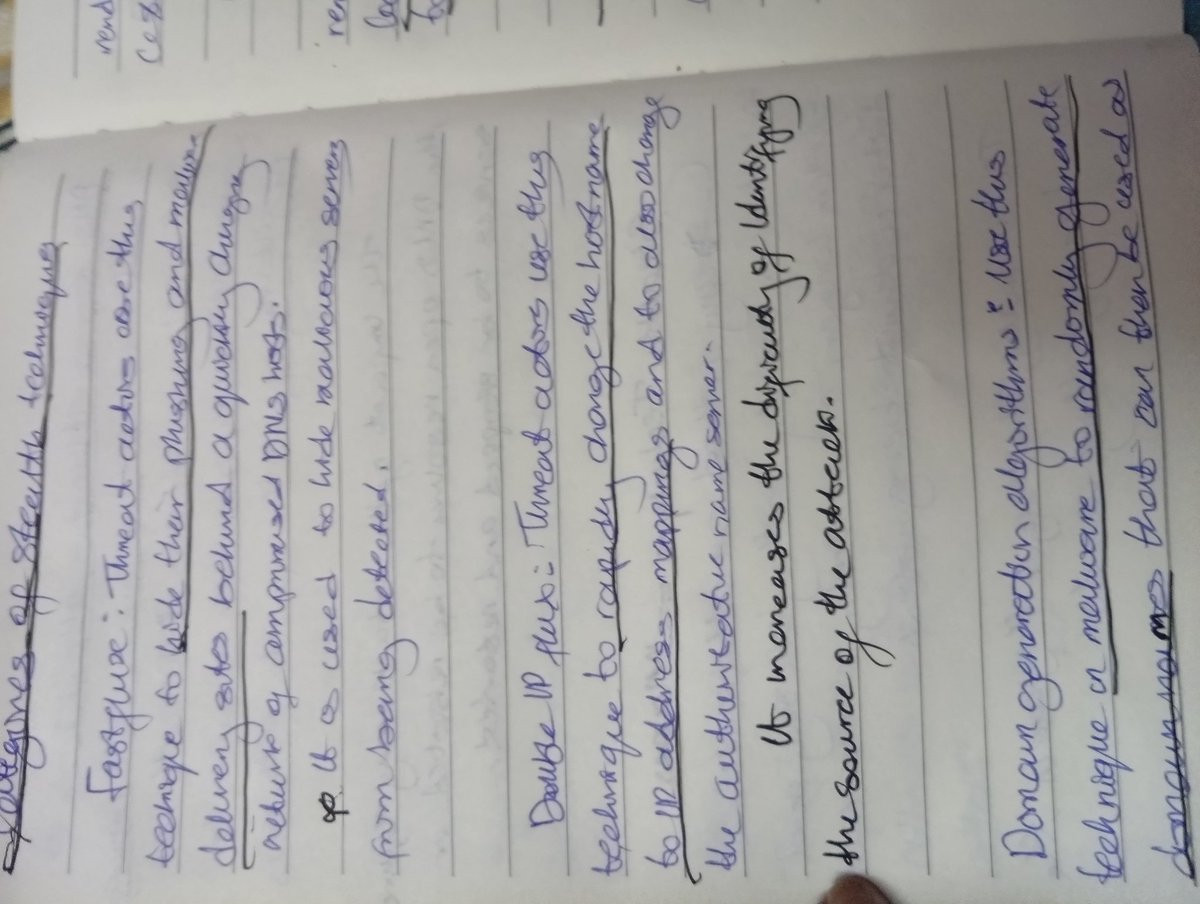 Categories of stealth technique
Fastflux: Threat actors use this
technique to hide their phishing and malware
delivery sites behind a quickly changing
network of compromised DNS hosts.
It is used to hide malicious servers
from being detected.
Double IP flux: Threat actors use this
technique to rapidly change the hostname
to IP address mappings and to also change
the authoritative name server.
It increases the difficulty of Identifying
the source of the attack.
Domain generation algorithms: Use this
technique in malware to randomly generate
domain names that can then be used as
rend